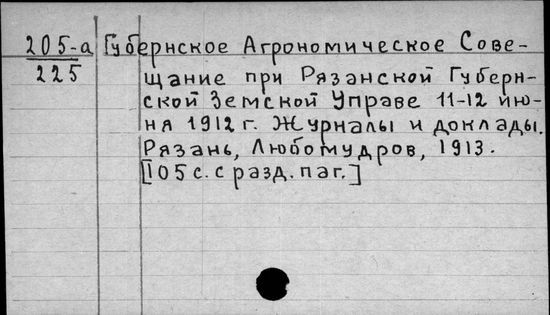 205-а Губернское Агрономическое Сове-
225 щание при Рязанской Губерн-
ской Земской Управе 11-12 ию-
ня 1912 г. Журналы и доклады.
Рязань, Любомудров, 1913.
[105 с. с разд. паг.]